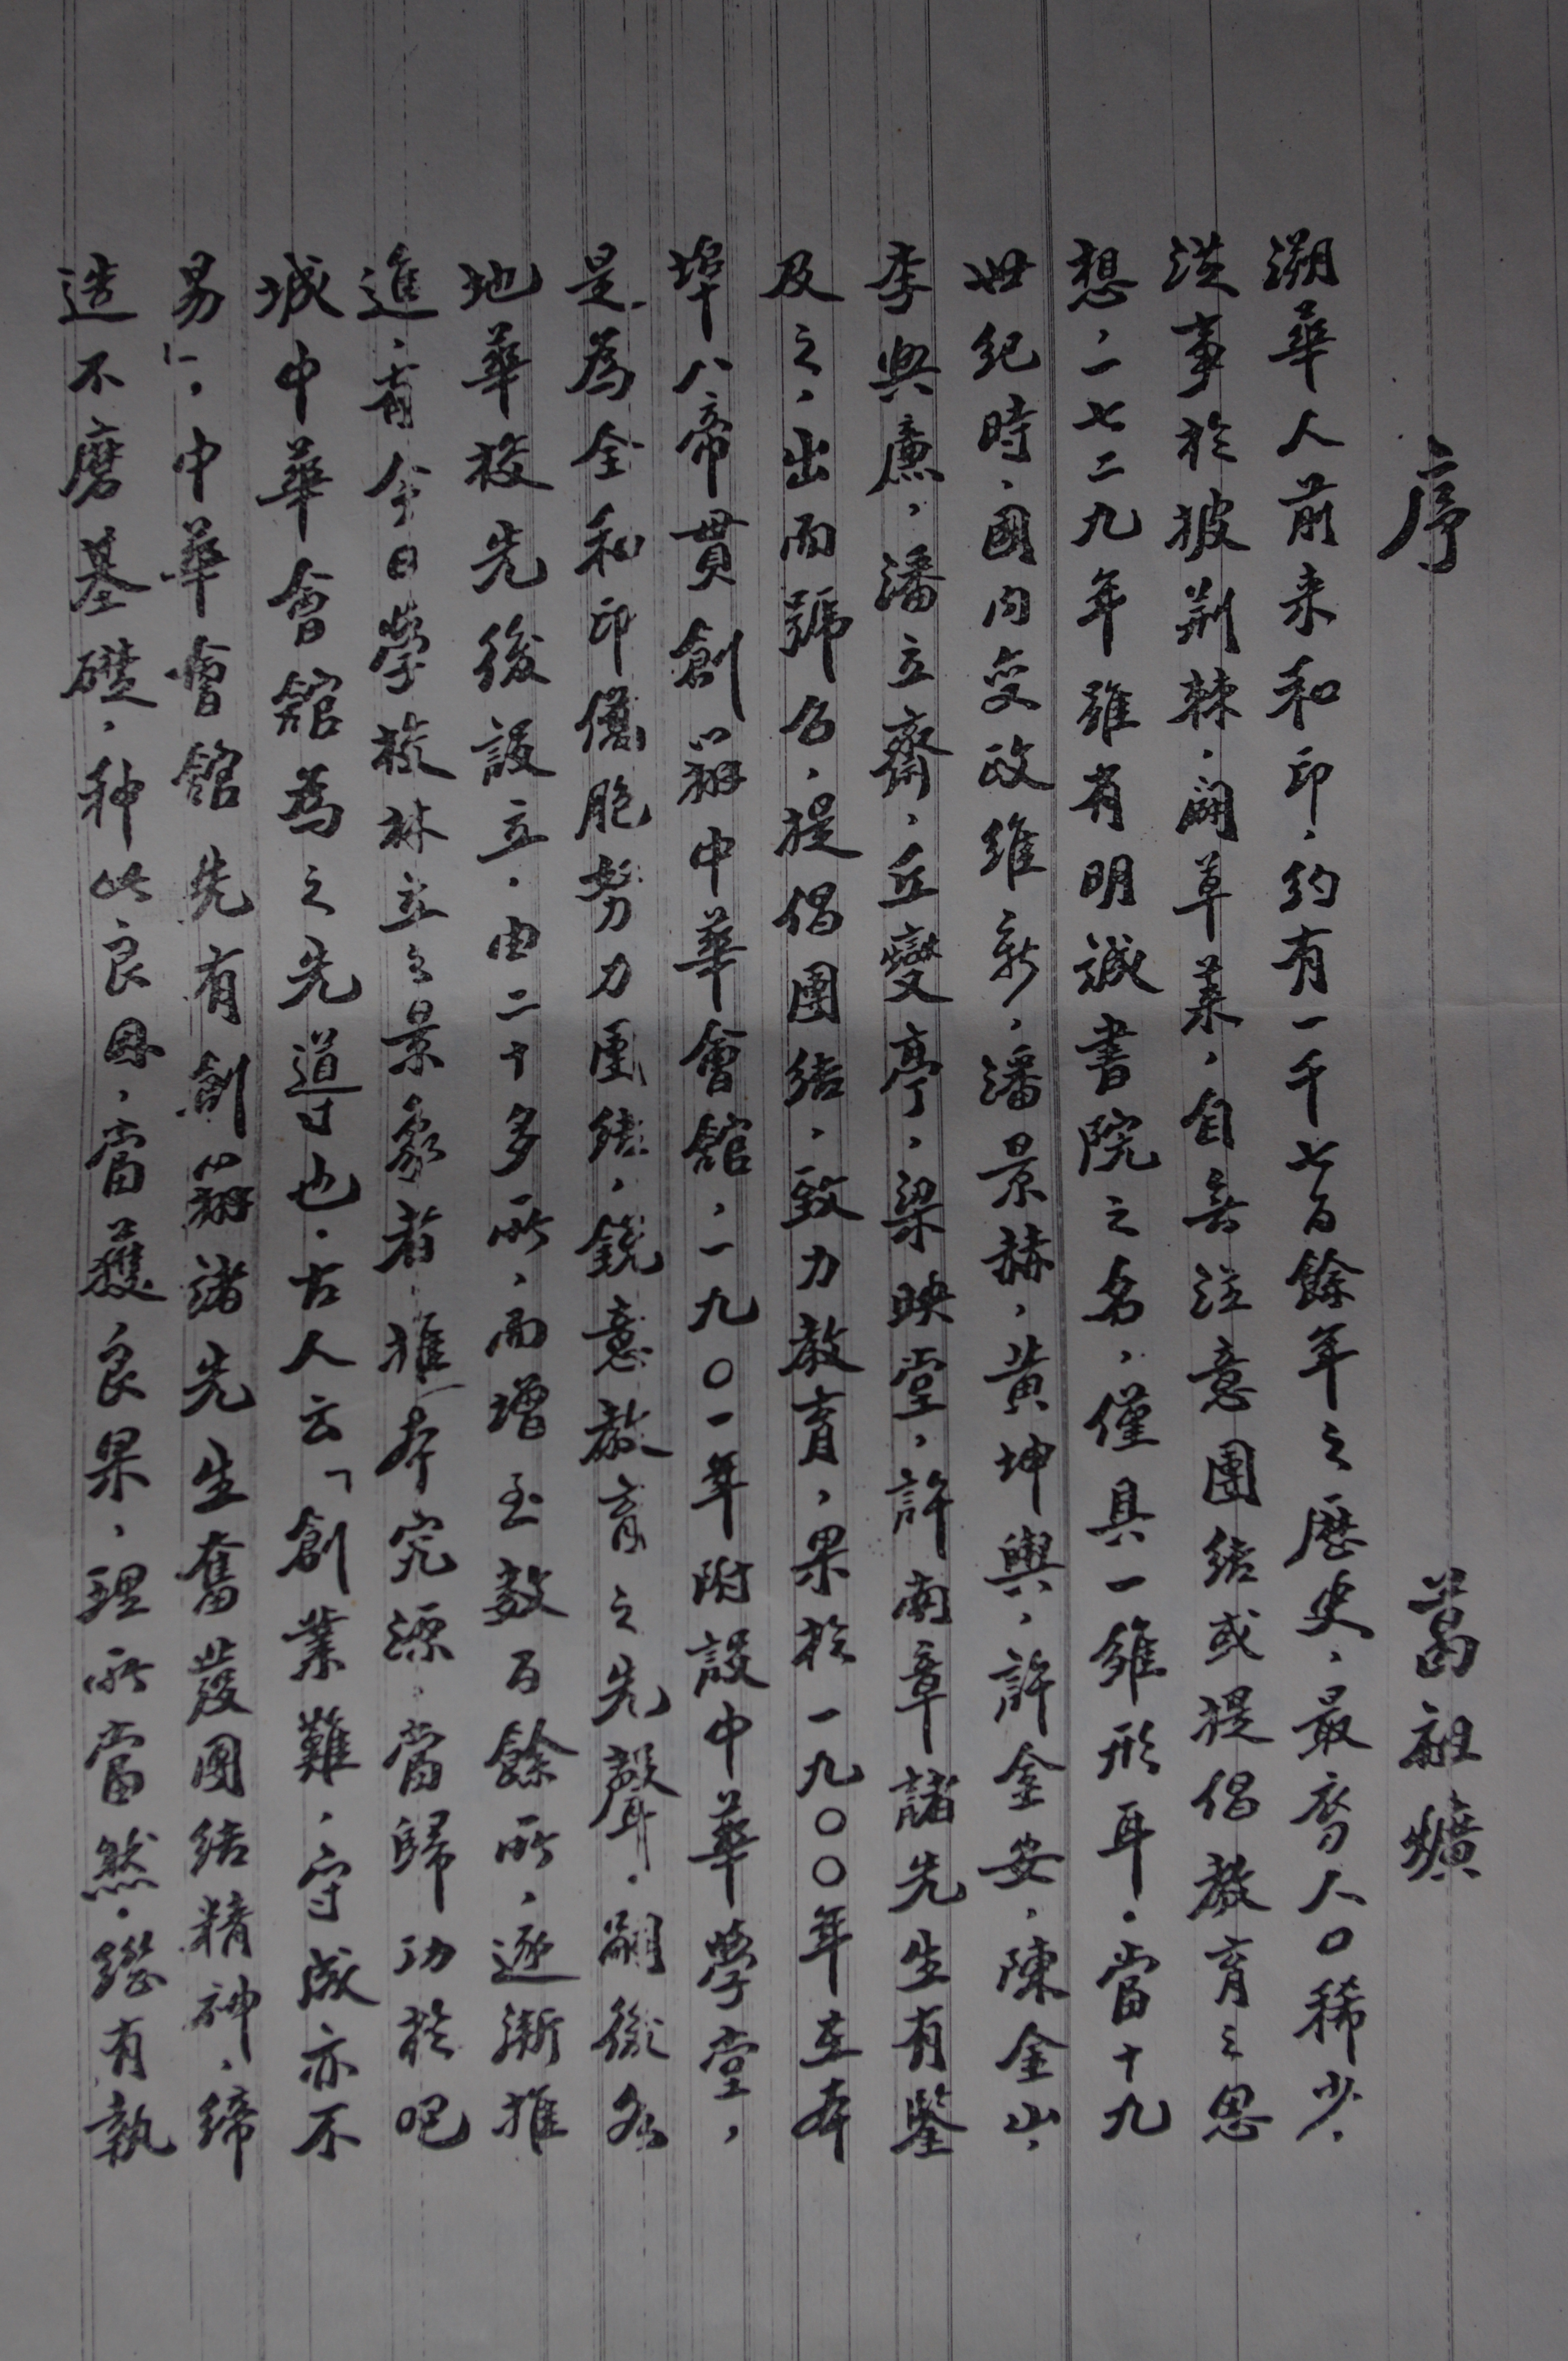 序　葛祖爌
溯華人前来和印，約有一千七百餘年之歷史，最初人口稀少，
從事於披荆棘，闢草萊，自無注意團結或提倡教育之思
想，一七二九年雖有明誠書院之名，僅具一雏形耳。當十九
世纪時，國内变政维新，潘景赫，黄坤輿，許金安，陳金山，
李興廉，潘立齋，丘燮亭，梁映堂，許南章諸先生有鑒
及之，出而號召，提倡團结，致力教育，果於一九〇〇年在本
埠八帝貫創辦中華會館，一九〇一年附設中華學堂，
是為全和印僑胞努力團结，銳意教育之先聲。嗣後各
地華校先後設立，由二十多所，而增至数百餘所，逐漸推
進，有今日學校林立之景象者，推本究源，當歸功於吧
城中華會館為之先導也。古人云「創業難，守成亦不
易」，中華會館先有創辦諸先生奮發團结精神，締
造不磨基礎，种此良因，當獲良果，理所當然。継有執